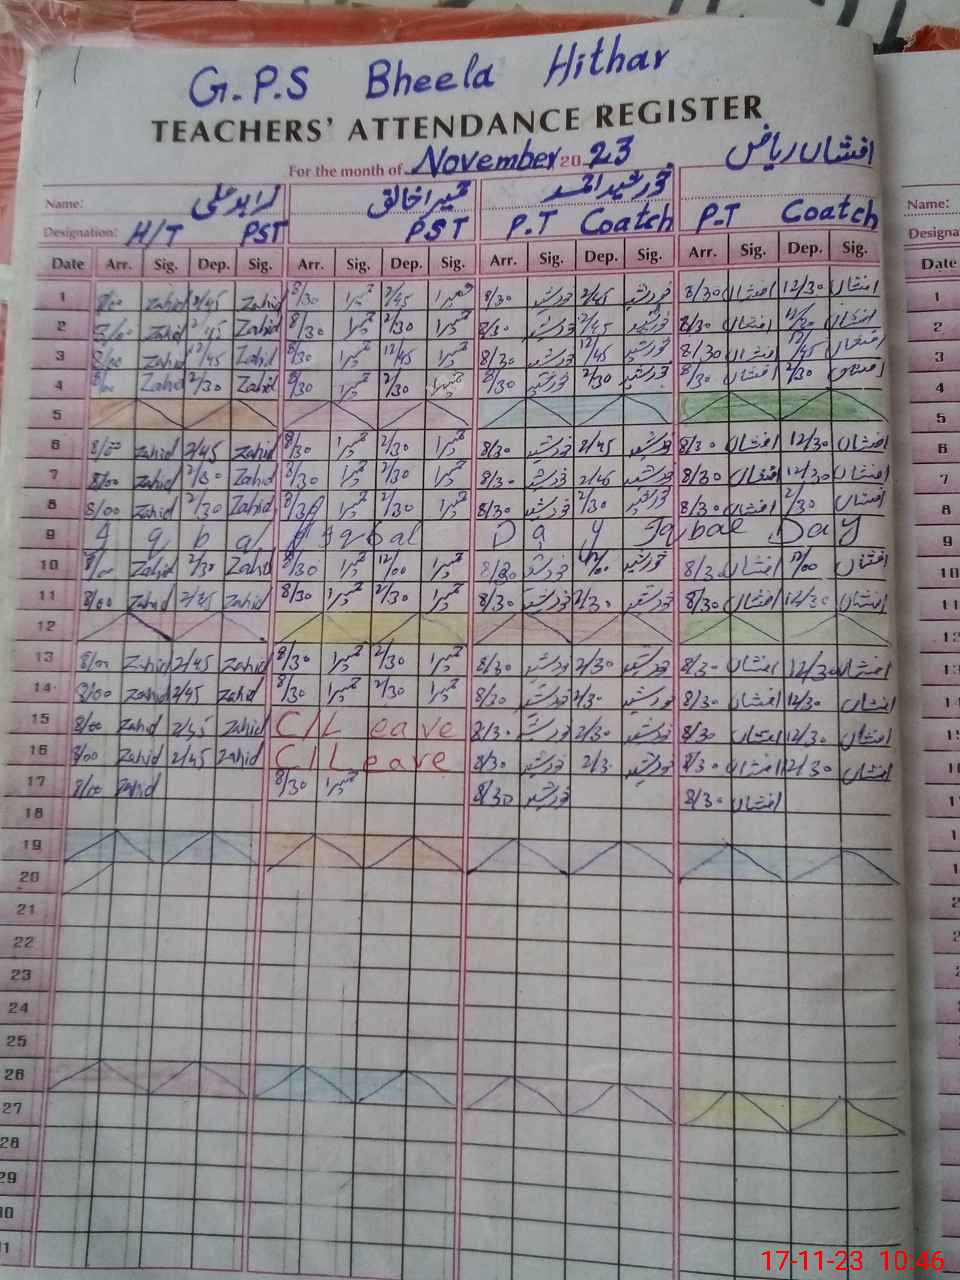 G.P.S Bheela Hithar
TEACHERS' ATTENDANCE REGISTER
For the month of November 2023
افشاں ریاض
Name: زاہد علی خورشید احمد Name:
Designation: H/T PST PST P.T Coatch P.T Coatch Designa
Date Arr. Sig. Dep. Sig. Arr. Sig. Dep. Sig. Arr. Sig. Dep. Sig. Arr. Sig. Dep. Sig. Date
1 8/00 Zahid 2/45 Zahid 8/30 2/45 8/30 خورشید 2/45 خورشید 8/30 افشاں 12/30 افشاں 1
2 8/00 Zahid 2/45 Zahid 8/30 2/30 8/30 خورشید 2/45 خورشید 8/30 افشاں افشاں 2
3 8/00 Zahid 12/45 Zahid 8/30 12/45 8/30 خورشید 12/45 خورشید 8/30 افشاں 12/45 افشاں 3
4 8/00 Zahid 2/30 Zahid 8/30 2/30 8/30 خورشید 2/30 خورشید 8/30 افشاں 2/30 افشاں 4
5 5
6 8/00 Zahid 2/45 Zahid 8/30 2/30 8/30 خورشید 2/45 خورشید 8/30 افشاں 12/30 افشاں 6
7 8/00 Zahid 2/30 Zahid 8/30 2/30 8/30 خورشید 2/45 خورشید 8/30 افشاں 12/30 افشاں 7
8 8/00 Zahid 2/30 Zahid 8/30 2/30 8/30 خورشید 2/30 خورشید 8/30 افشاں 2/30 افشاں 8
9 I q b a l Iqbal D a y Iqbal Day 9
10 8/00 Zahid 2/30 Zahid 8/30 12/00 8/30 خورشید 12/00 خورشید 8/30 افشاں 12/00 افشاں 10
11 8/00 Zahid Zahid 8/30 2/30 8/30 خورشید 2/30 خورشید 8/30 افشاں 12/30 افشاں 11
12 12
13 8/00 Zahid 2/45 Zahid 8/30 2/30 8/30 خورشید 2/30 خورشید 8/30 افشاں 12/30 افشاں 1
14 8/00 Zahid 2/45 Zahid 8/30 2/30 8/30 خورشید 2/30 خورشید 8/30 افشاں 12/30 افشاں 1
15 8/00 Zahid 2/45 Zahid C/Leave 8/30 خورشید 2/30 خورشید 8/30 افشاں 12/30 افشاں 1
16 8/00 Zahid 2/45 Zahid C/Leave 8/30 خورشید 2/30 خورشید 8/30 افشاں 12/30 افشاں 1
17 8/00 Zahid 8/30 8/30 خورشید 8/30 افشاں 1
18
19
20
21
22
23
24
25
26
27
28
29
30
31
17-11-23 10:46